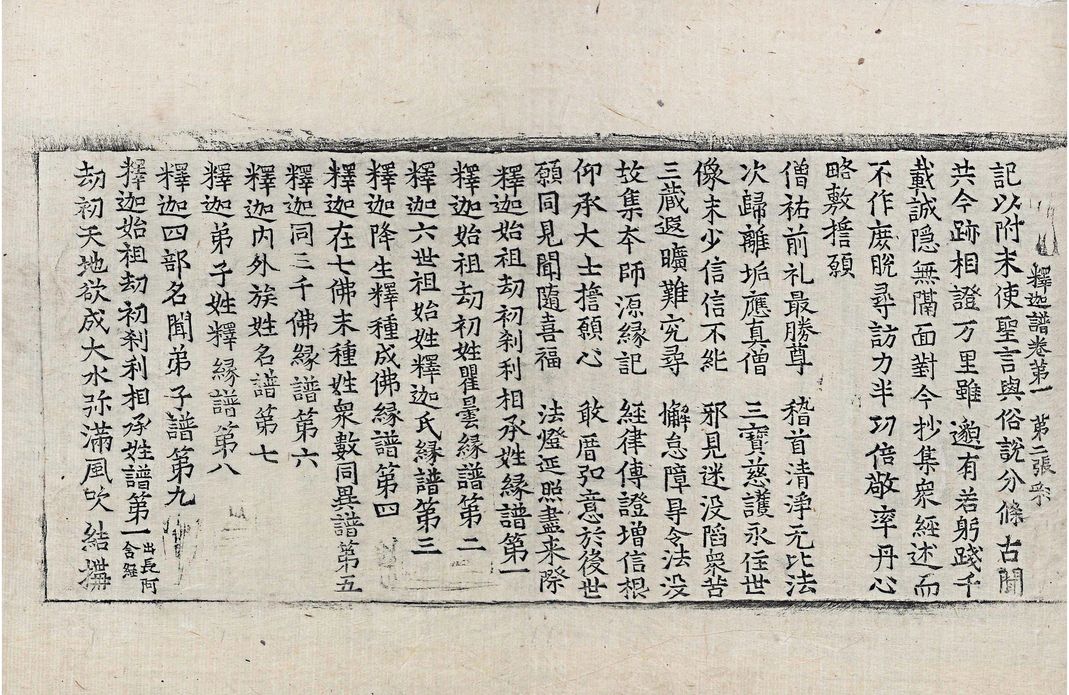 釋迦譜卷第一 第二張
記以附末使聖言與俗說分條古聞
共今跡相證万里雖邈有若躬踐千
載誠隱無隔面對今抄集衆經述而
不作庶脫尋訪力半功倍敬率丹心
略敷擔願
僧祐前礼最勝尊 稽首清淨无比法
次歸離垢應真僧 三寶慈護永住世
像末少信信不能 邪見迷没䧟衆苦
三藏遐曠難究尋 懈怠障㝵令法没
故集夲師源縁記 經律傳證增信根
仰承大士擔願心 敢厝弘意於後世
願同見聞隨喜福 法燈延照盡来際
釋迦始祖劫初刹利相承姓縁譜第一
釋迦始祖劫初姓瞿曇縁譜第二
釋迦六世祖始姓釋迦氏縁譜第三
釋迦降生釋種成佛縁譜第四
釋迦在七佛末種姓衆數同異譜第五
釋迦同三千佛縁譜第六
釋迦内外族姓名譜第七
釋迦弟子姓釋縁譜第八
釋迦四部名聞弟子譜第九
釋迦始祖劫初刹利相承姓譜第一 出長阿含経
劫初天地欲成大水弥滿風吹結搆